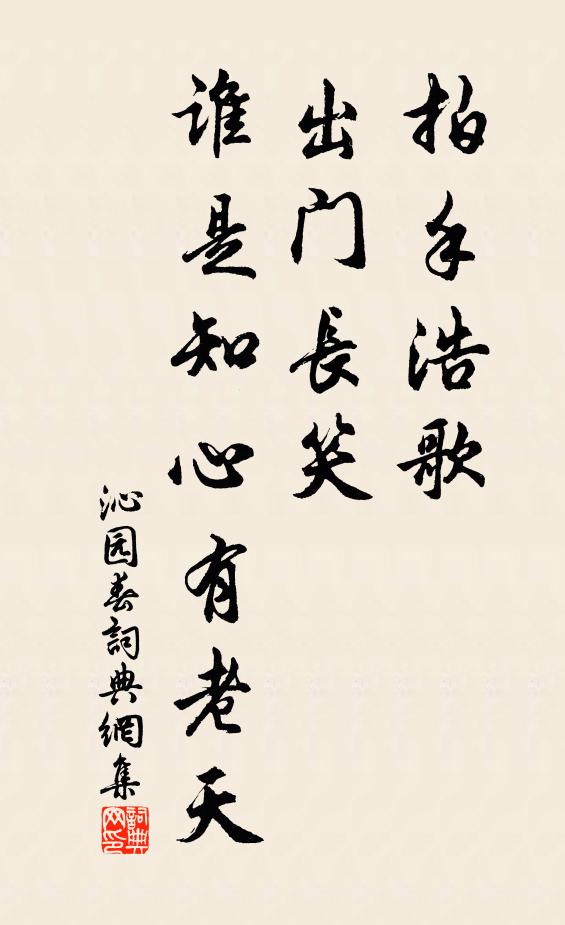 拍手浩歌
出门長笑
誰是知心有老天
沁园春詞典網集
詞典
网印